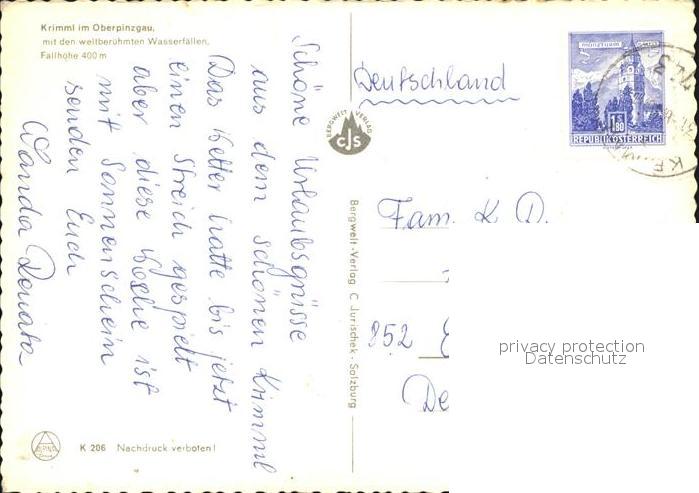 Krimml im Oberpinzgau,
mit den weltberühmten Wasserfällen,
Fallhöhe 400 m
Schöne Urlaubsgrüsse
aus dem schönen Krimml
Das Wetter hatte bis jetzt
einen Streich gespielt
aber diese Woche ist
mit Sonnenschein
senden Euch
Wanda Renata
K 206 Nachdruck verboten!
BERGWELT VERLAG
CJS
Bergwelt-Verlag C. Jurischek - Salzburg
Deutschland
MÜNZTURM
1.80
REPUBLIK ÖSTERREICH
Fam. K D.
852
De
privacy protection
Datenschutz